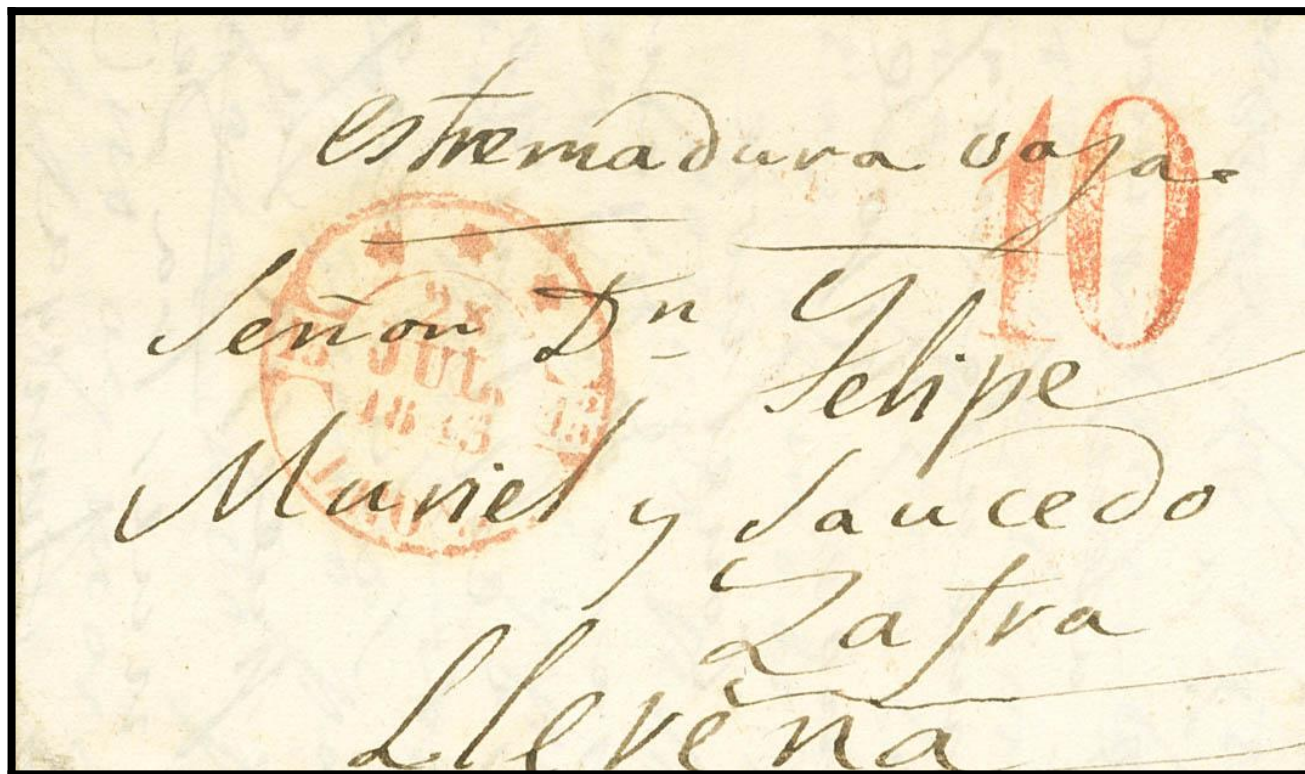 estremadura vaja.
10
Señor Dn Felipe
Muriel y Saucedo
Zafra
Llerena
JUL